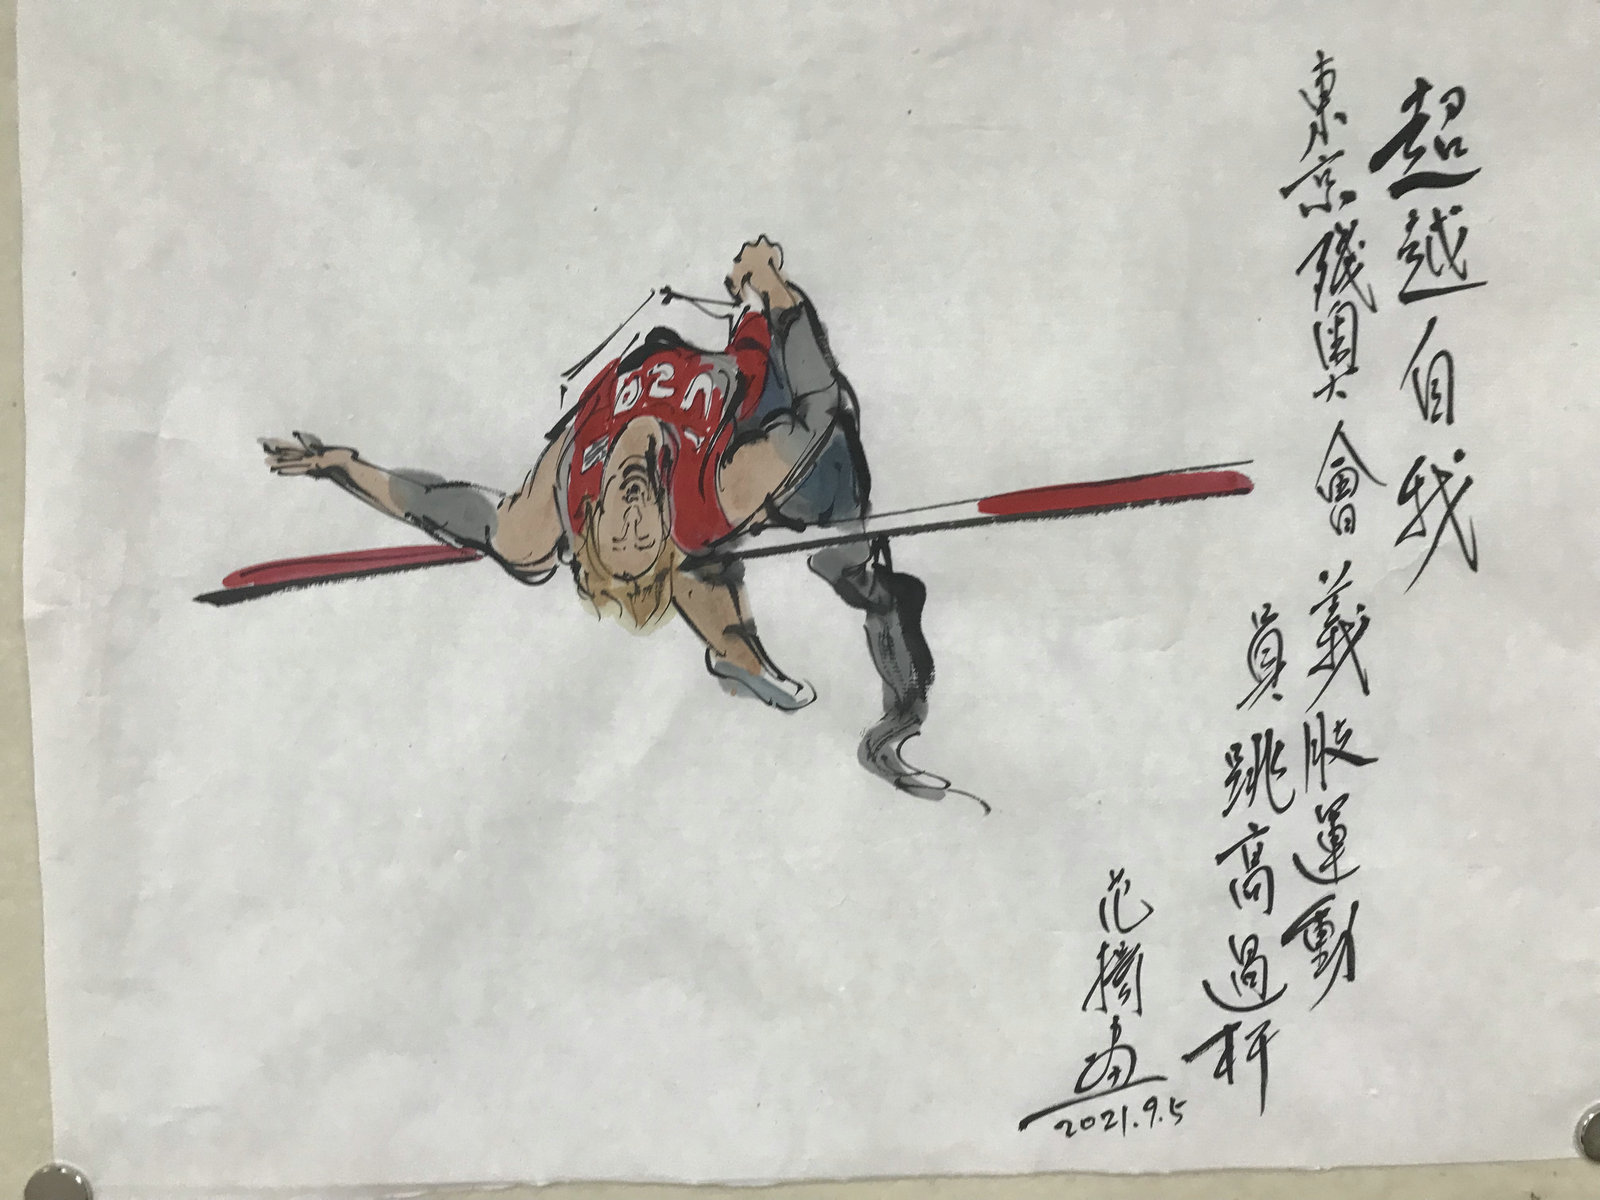 超越自我
東京殘奧大會義肢運動
員跳高過杆
范擠畫
2021.9.5